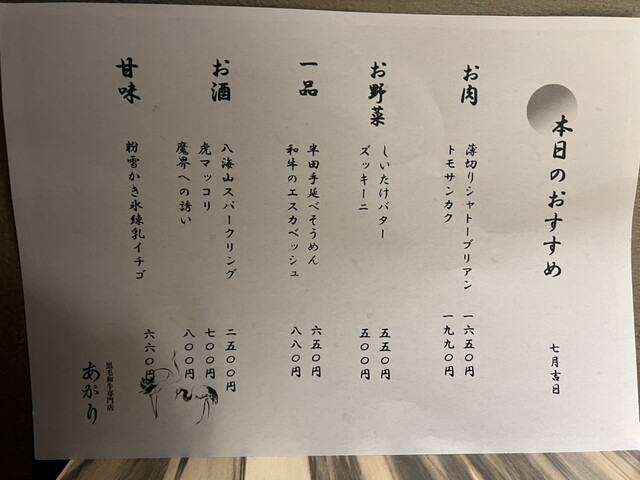 本日のおすすめ
七月吉日
お肉
薄切りシャトーブリアン 一六五〇円
トモサンカク 一九九〇円
お野菜
しいたけバター 五五〇円
ズッキーニ 五〇〇円
一品
半田手延べそうめん 六五〇円
和牛のエスカベッシュ 八八〇円
お酒
八海山スパークリング 二五〇〇円
虎マッコリ 七〇〇円
魔界への誘い 八〇〇円
甘味
粉雪かき氷練乳イチゴ 六六〇円
黒毛和牛専門店
あがり